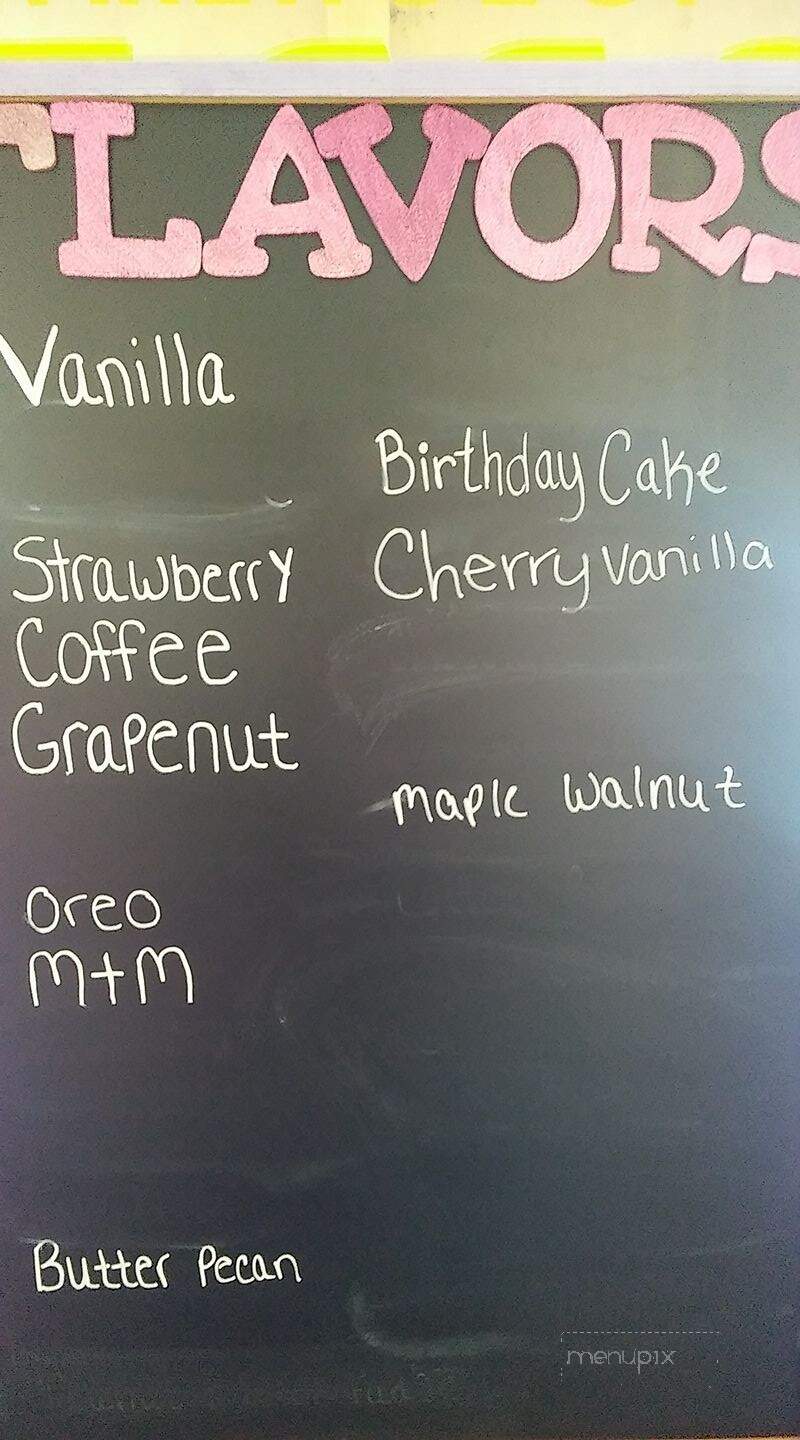 FLAVORS
Vanilla
Strawberry
Coffee
Grapenut
Oreo
M+M
Butter Pecan
Birthday Cake
Cherry Vanilla
maple walnut
menupix